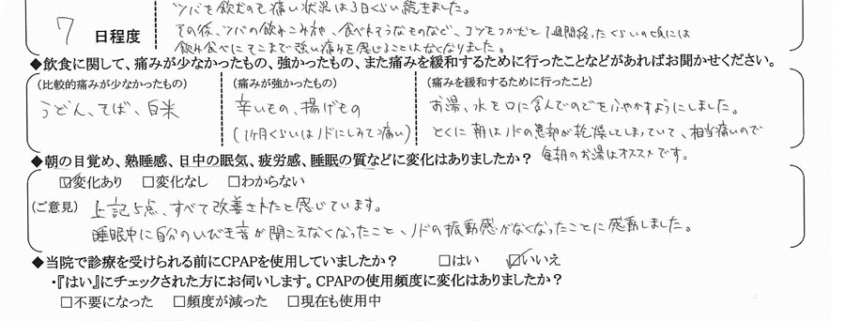 ツバを飲むのも痛い状況は3日くらい続きました。
その後、ツバの飲みこみ方や、食べれそうなものなど、コツをつかむと1週間経ったくらいの頃には
7 日程度
飲み食べにそこまで強い痛みを感じることはなくなりました。
◆飲食に関して、痛みが少なかったもの、強かったもの、また痛みを緩和するために行ったことなどがあればお聞かせください。
(比較的痛みが少なかったもの) (痛みが強かったもの) (痛みを緩和するために行ったこと)
うどん、そば、白米 辛いもの、揚げもの お湯、水を口に含んでのどをふやかすようにしました。
(1ヶ月くらいはノドにしみて痛い) とくに朝はノドの患部が乾燥してしまっていて、相当痛いので
毎朝のお湯はオススメです。
◆朝の目覚め、熟睡感、日中の眠気、疲労感、睡眠の質などに変化はありましたか?
☑変化あり □変化なし □わからない
(ご意見) 上記5点、すべて改善されたと感じています。
睡眠中に自分のいびき音が聞こえなくなったこと、ノドの振動感がなくなったことに感動しました。
◆当院で診療を受けられる前にCPAPを使用していましたか? □はい ☑いいえ
・『はい』にチェックされた方にお伺いします。CPAPの使用頻度に変化はありましたか?
□不要になった □頻度が減った □現在も使用中